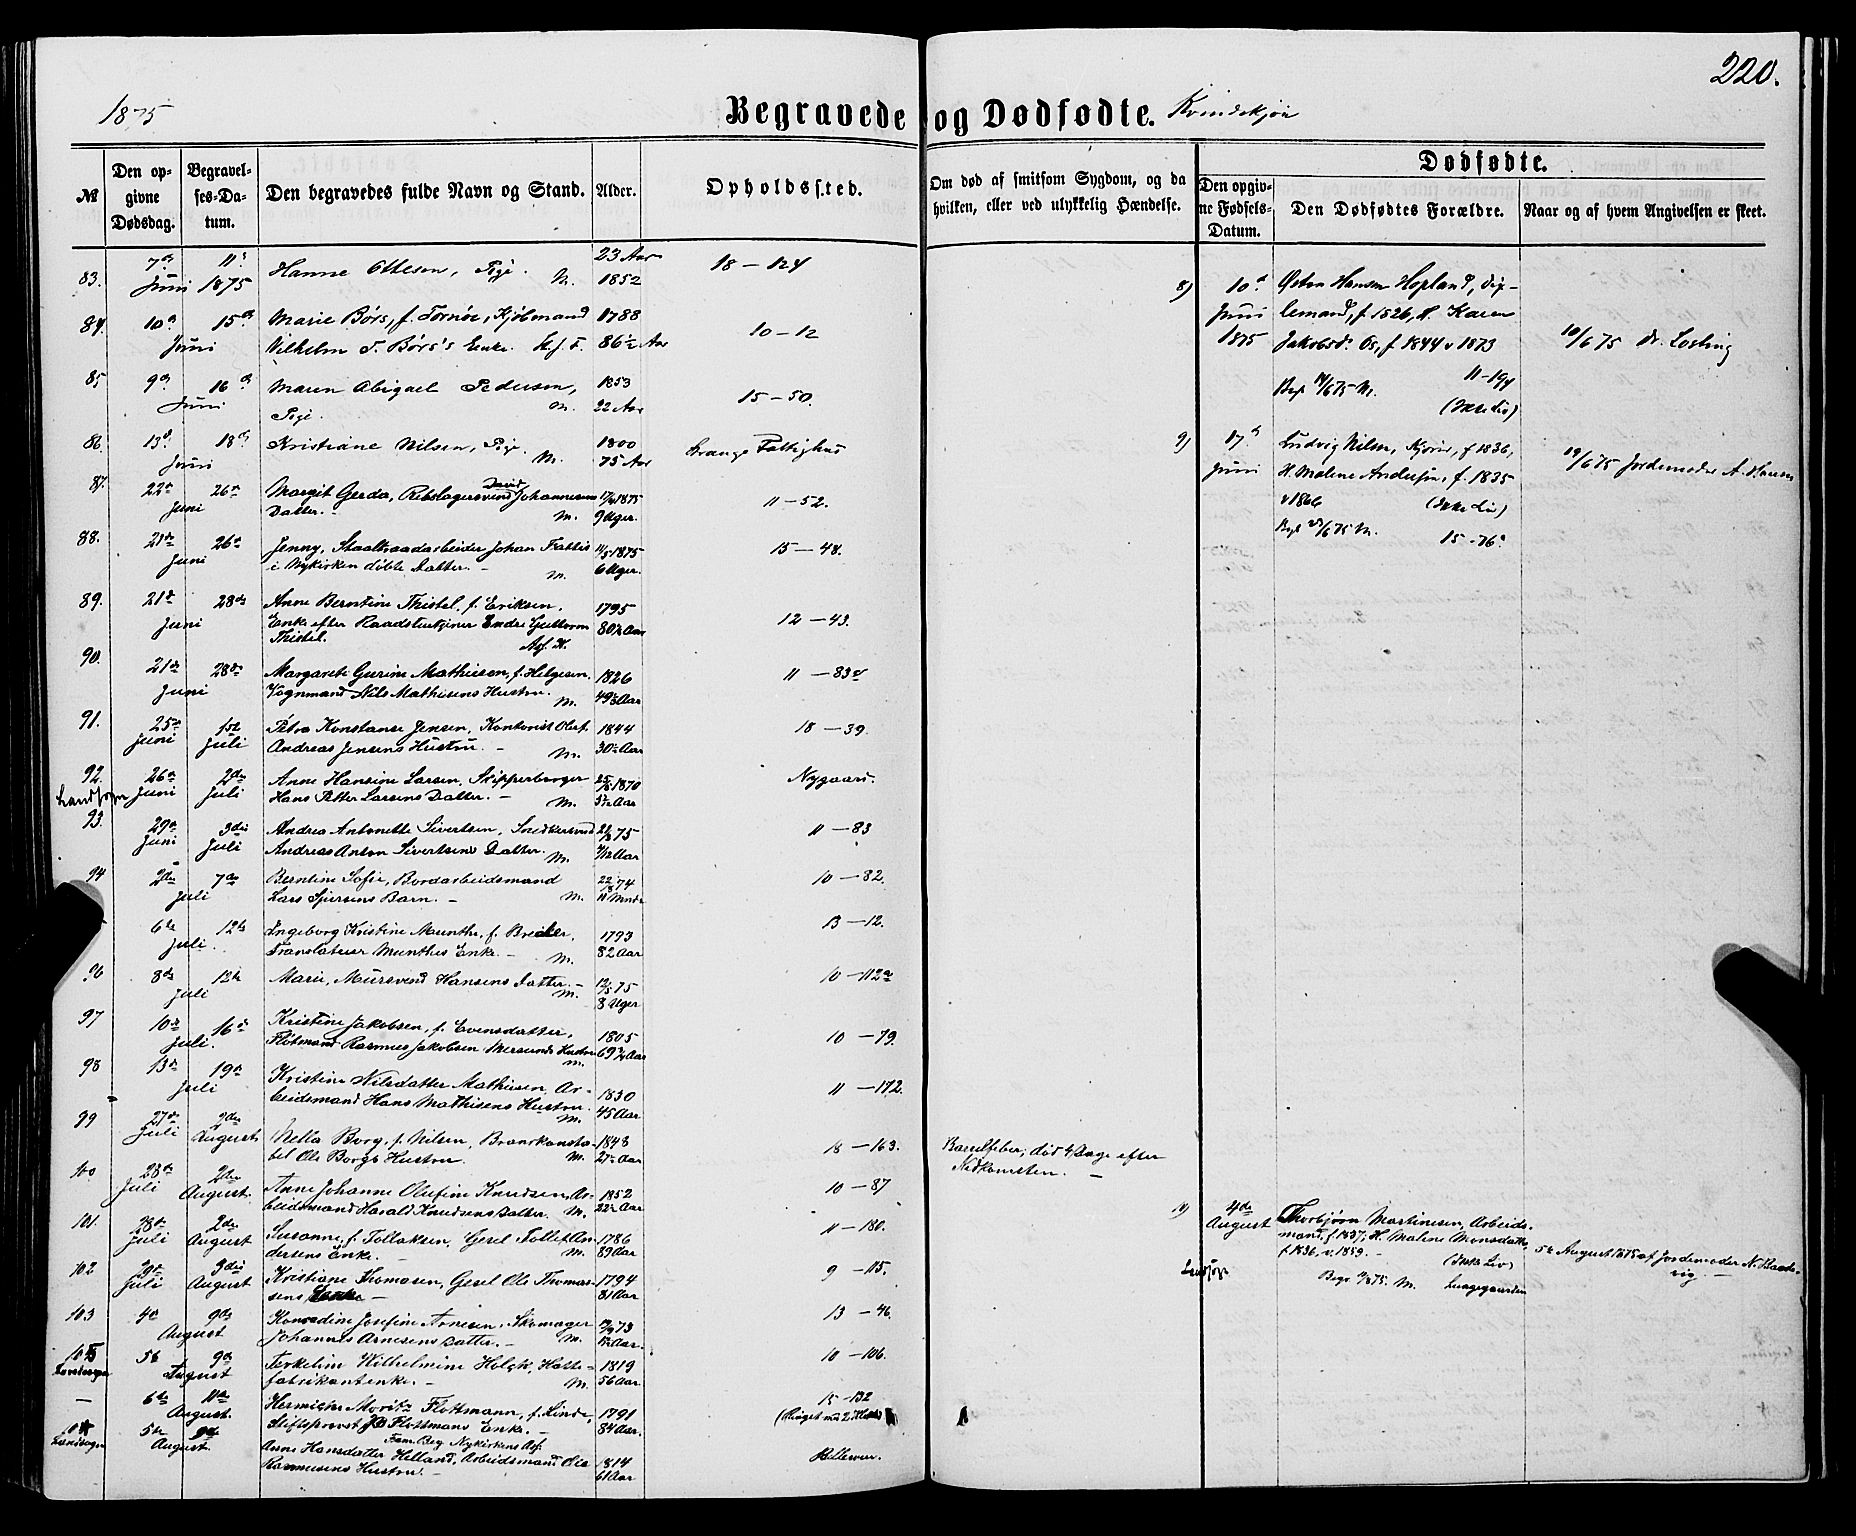 220.
1875
Begravede og Dødfødte. Kvindekjøn
№
Den opgivne Dødsdag.
Begravelses-Datum.
Den begravedes fulde Navn og Stand.
Alder.
Opholdssted.
Om død af smitsom Sygdom, og da hvilken, eller ved ulykkelig Hændelse.
Dødfødte.
Den opgivne Fødsels-Datum.
Den Dødfødtes Forældre.
Naar og af hvem Angivelsen er skeet.
83. 7de Juni 11te 1875 Hanne Ottesen, Pige. M. 23 Aar 1852 18-124
84. 10de 15de Juni Marie Børs, f. Tornøe, Kjøbmand 1788
Vilhelm Børs's Enke. 86½ Aar 10-12
85 9de 16de Juni Maren Abigael Pedersen, 1853
Pige. M. 22 Aar 15-50.
86. 13de 18de Juni Kristiane Nilsen, Pige. M. 1800 75 Aar Stranges Fattighus
87. 22de 26de Juni Margit Gerda, Rebslagersvend David Johannesens
Datter. M. 1875 9 Uger. 11-52.
88. 21de 26de Juni Jenny, Staaltraadarbeider Johan
i Nykirken døbte Datter. M. 1875 6 Uger. 15-48.
89. 21de 28de Juni Anne Berntine Thistel, f. Eriksen, 1795
Enke efter Raadstuetjener Endre Guttorm 80½ Aar 12-43.
Thistel.
90. 21de 28de Juni Margarete Gurine Mathiesen, f. Helgesen. 1826
Vognmand Nils Mathisens Hustru. M. 49 Aar 11-83
91. 25de Juni 1ste Juli Petra Konstanse Jensen, Kontorist Oluf 1844
Andreas Jensens Hustru. M. 30 Aar 18-39.
92. Landsogn 26de Juni 2den Juli Anne Hansine Larsen, Skipperborger 1870
Hans Petter Larsens Datter. M. Aar Nygaard.
93. 29de Juni 3die Juli Andrea Antonette Sivertsen, Snedkersvend 75
Andreas Anton Sivertsens Datter. M. Aar 11-83
94 2den 7de Juli Berntine Sofie, Bordarbeidsmand 74
Lars Barn. M. 11 Mnder 10-82.
6te 12te Juli. Ingeborg Kristine Munthe, f. 1793
Translateur Munthes Enke. M. 82 Aar 13-12.
96 8de 13de Juli Marie, Mursvend Hansens Datter. M. 75 8 Uger 10-112a
97 10de 16de Juli. Kristine Jakobsen, f. Evensdatter, 1805
Flotmand Rasmus Jakobsen Hustru M. 69 Aar 10-79.
98 13de 19de Juli Kristine Nilsdatter Mathiesen, Ar- 1830
beidsmand Hans Mathisens Hustru. M. 45 Aar 11-172.
99 27de Juli 2den August Nella Borg, f. Nilsen, Brandkonsta- 1848
bel Ole Borgs Hustru. M. 27 Aar 18-163. Barselfeber; død 4 Dage efter
Nedkomsten.
100 28de Juli 2den August. Anne Johanne Olufine Knudsen, Ar- 1852
beidsmand Harald Knudsens Datter. M. 22 Aar 10-87
101. 28de Juli 2den August Susanne, f. Tollaksen, Gesel Tollef An- 1786
dersens Enke. M. 89 Aar 11-180.
102 29de Juli 3die August Kristiane Thomasen, Gesel Ole Thomas- 1794
sens Enke 81 Aar 9-115.
103 4de 9de August Konradine Josefine Arnesen, Skomager 73
Johannes Arnesens Datter. M. Aar. 13-46.
5te 9de August Terkeline Wilhelmine Holck, Hatte- 1819
fabrikantenke. M. 56 Aar 10-106.
6te 11te August. Moritz Flottmann, f. Linde, 1791
Stiftsprovst Flottmans Enke. 84 Aar. 15-132
Fam. Beg. Nykirkens
Landsogn 5te August. Anne Hansdatter Helland, Arbeidsmand Ole 1814
Rasmusens Hustru 61 Aar
8) 10de Juni 1875 Østen Hansen Hopland,
f. 1826, H. Karen
Jakobsd. f. 1844 v 1873
Beg. 75 M. 11-194
(Ikke Liv)
10/6 75 Dr. Losting
9) 17de Juni Ludvig Nilsen, f. 1836,
H. Malene Andersen, f. 1835
v 1866 (Ikke Liv)
Beg. 23/6 75 M. 15-76.
19/6 75 Jordemoder A. Hansen
4de August Thorbjørn Martinesen, Arbeids-
mand, f. 1837; H. Maline Monsdatter,
f. 1836, v. 1859. (Ikke Liv)
Begr. 75. M. Lungegaarden
Landsogn
5te August 1875 af Jordemoder N.